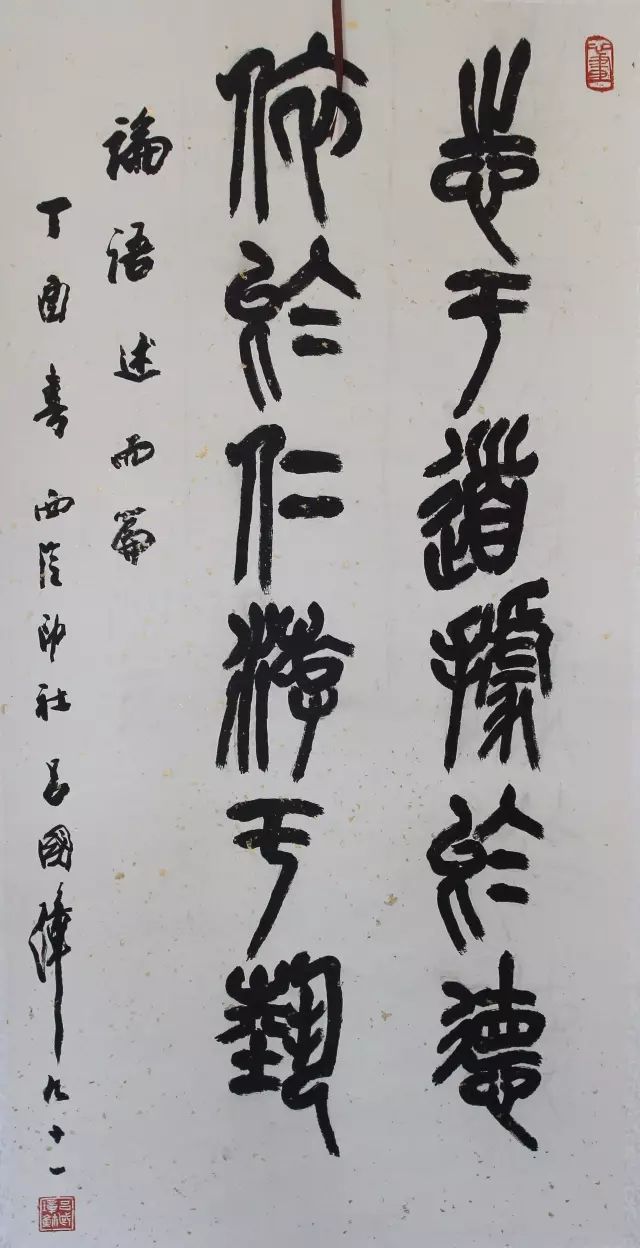 志于道據於德
依於仁游于藝
論語述而篇
丁酉春西泠印社呂國璋九十一